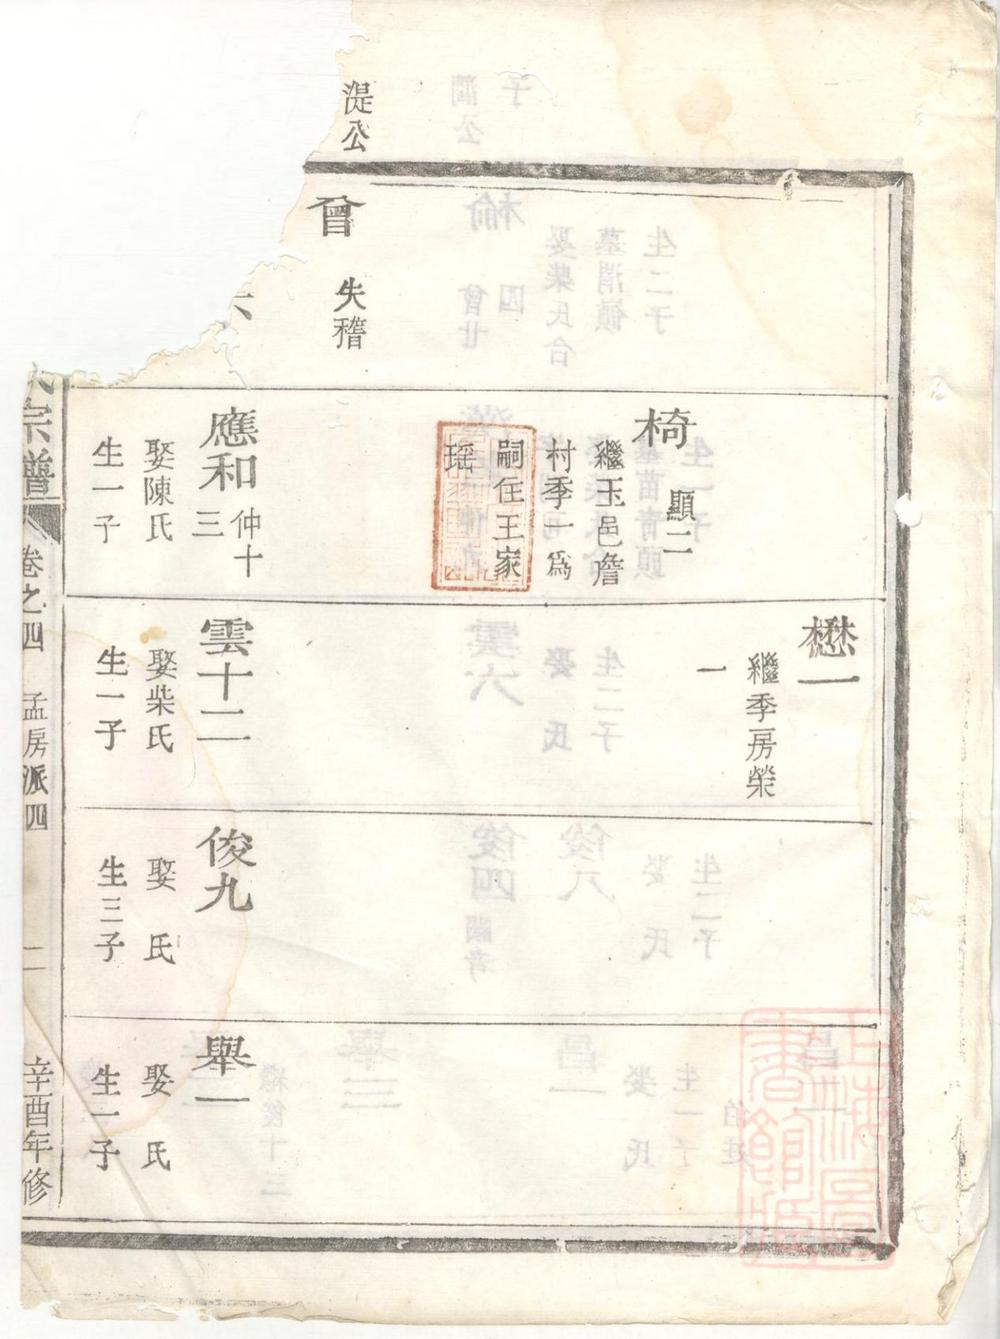 湜公
曾
失稽
椅
顯二
繼玉邑詹
村季一爲
嗣住王家
瑶
應和
仲十
三
娶陳氏
生一子
懋一
繼季房榮
一
雲十二
娶柴氏
生一子
俊九
娶 氏
生三子
舉一
娶 氏
生一子
宗譜
卷之四 孟房派四 二 辛酉年修
上海圖
書館藏